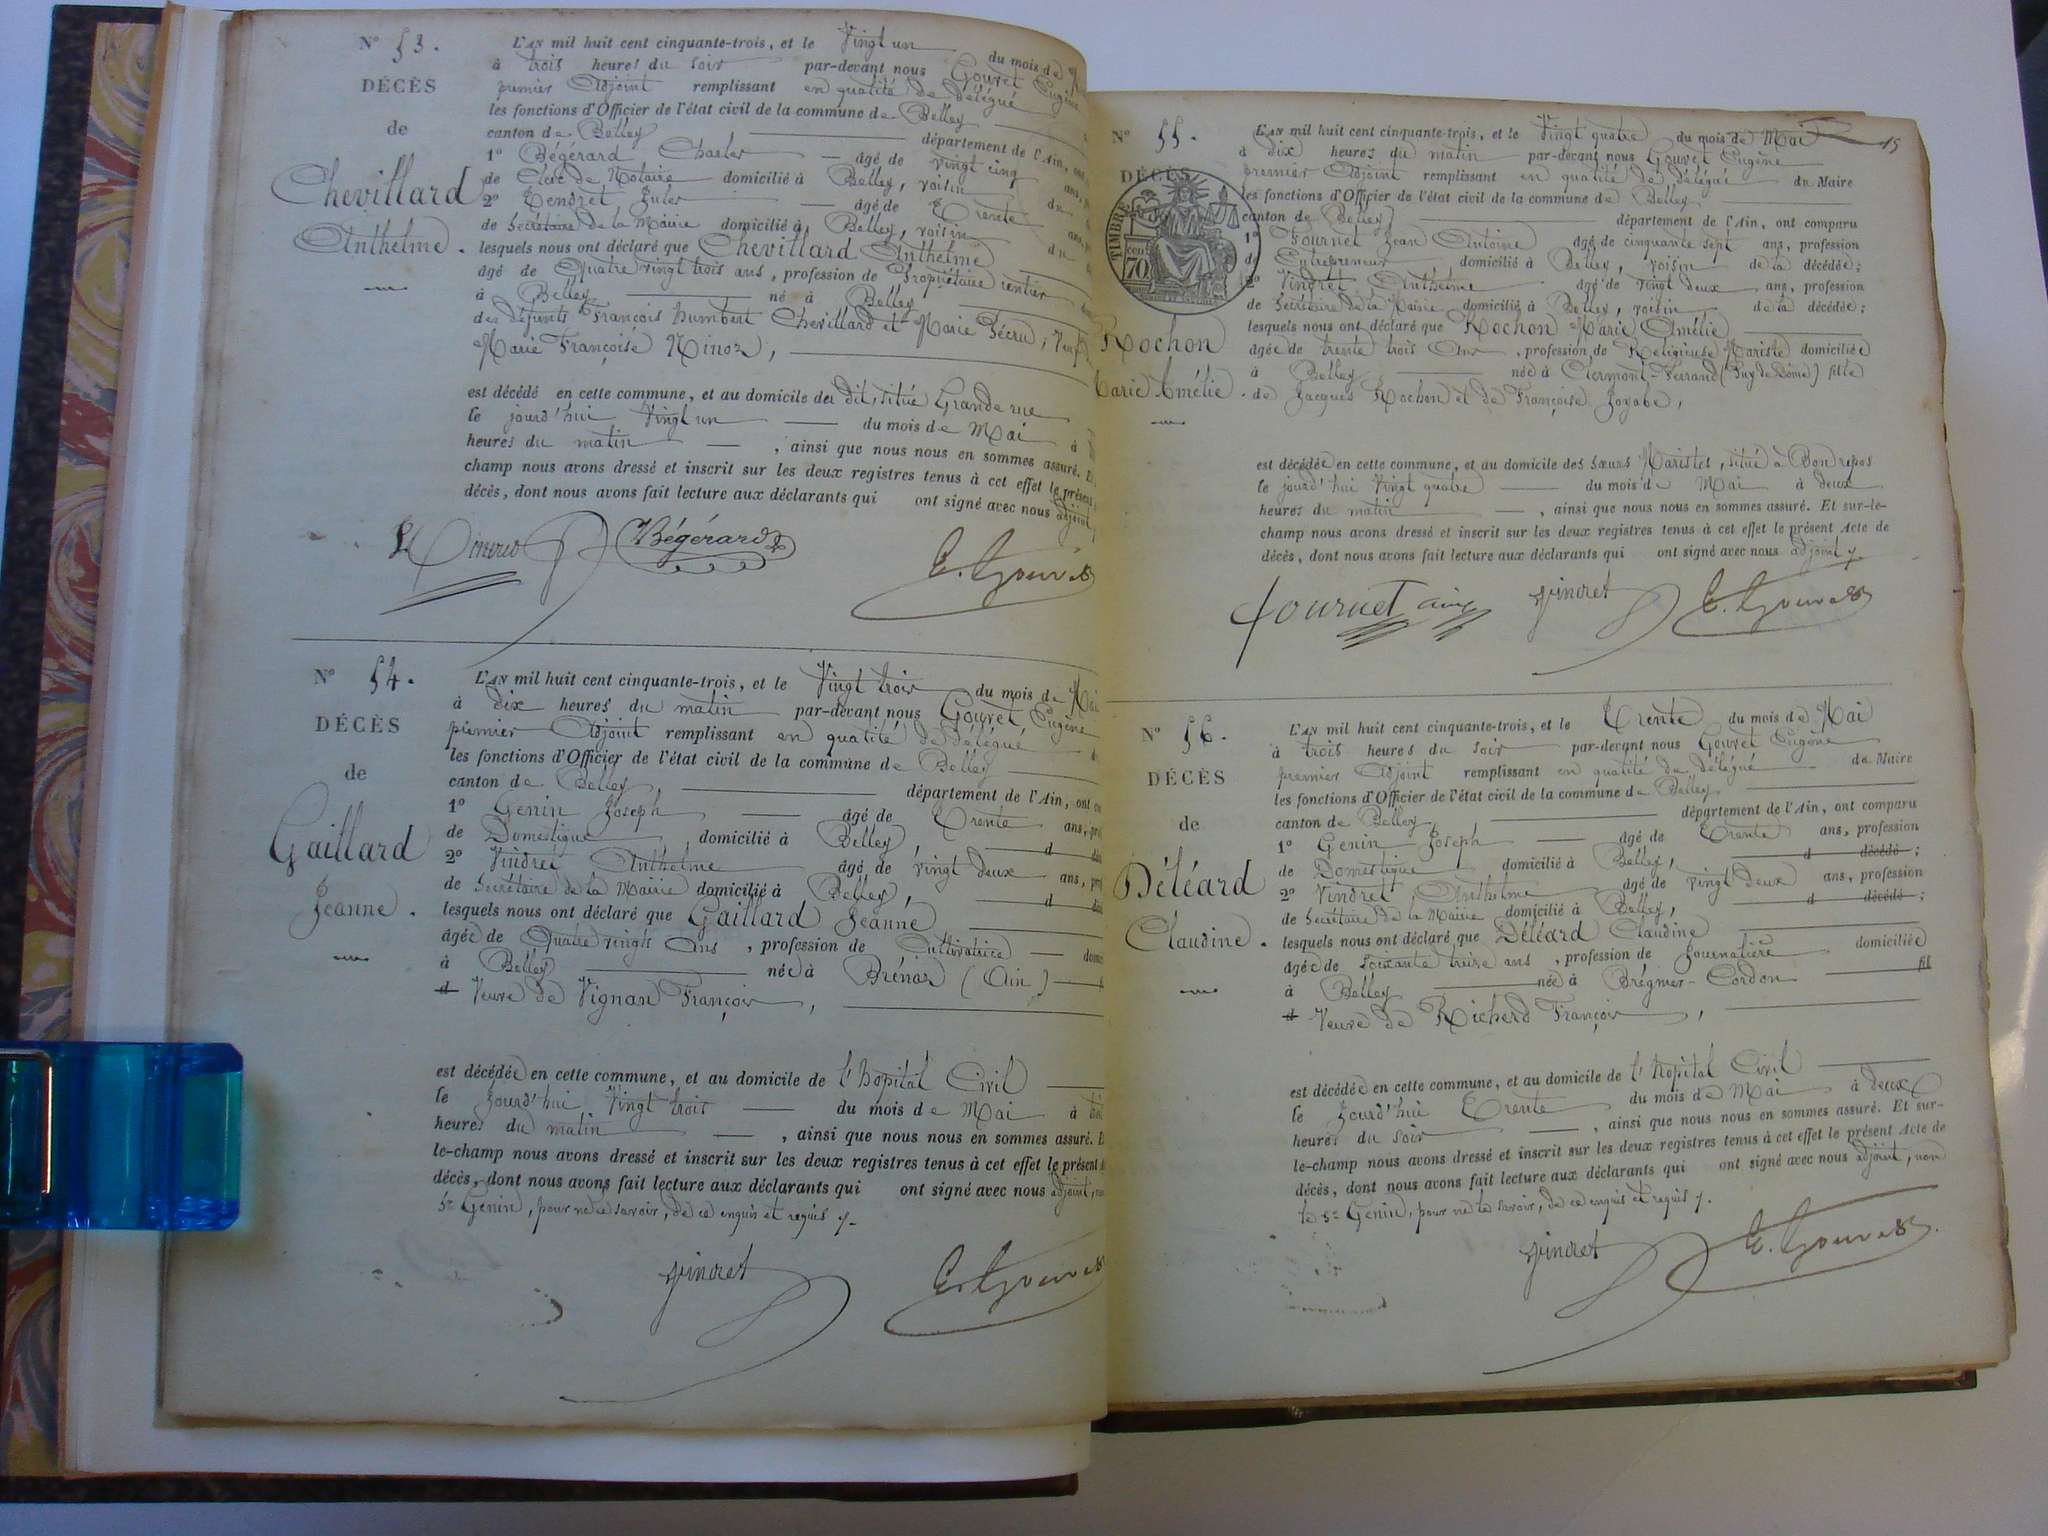 N° 53.
DÉCÈS
de
Chevillard
Anthelme.
L'AN mil huit cent cinquante-trois, et le Vingt un du mois de
à trois heures du soir par-devant nous Gouvet Eugène
premier Adjoint remplissant en qualité de délégué
les fonctions d'Officier de l'état civil de la commune de Belley
canton de Belley département de l'Ain, ont
1° Bégérard Charles âgé de vingt cinq ans,
de Clerc de Notaire domicilié à Belley, voisin du
2° Tendret Jules âgé de Trente ans,
de Secrétaire de la Mairie domicilié à Belley, voisin du
lesquels nous ont déclaré que Chevillard Anthelme
âgé de Quatre vingt trois ans, profession de Propriétaire rentier
à Belley né à Belley
des défunts François humbert Chevillard et Marie
Marie Françoise
est décédé en cette commune, et au domicile du dit, situé Grande rue
le jourd'hui Vingt un du mois de Mai à
heures du matin, ainsi que nous nous en sommes assuré. Et
champ nous avons dressé et inscrit sur les deux registres tenus à cet effet le présent
décès, dont nous avons fait lecture aux déclarants qui ont signé avec nous adjoint,
Bégérard
E. Gouvet
N° 54.
DÉCÈS
de
Gaillard
Jeanne.
L'AN mil huit cent cinquante-trois, et le Vingt trois du mois de Mai
à dix heures du matin par-devant nous Gouvet Eugène
premier Adjoint remplissant en qualité de délégué
les fonctions d'Officier de l'état civil de la commune de Belley
canton de Belley département de l'Ain, ont
1° Genin Joseph âgé de Trente ans,
de Domestique domicilié à Belley, d
2° Vindret Anthelme âgé de vingt deux ans,
de Secrétaire de la Mairie domicilié à Belley, d
lesquels nous ont déclaré que Gaillard Jeanne
âgée de Quatre vingts Ans, profession de Cultivatrice
à Belley née à Brénaz (Ain)
d Veuve de Vignan François,
est décédée en cette commune, et au domicile de l'hopital Civil
le Jourd'hui Vingt trois du mois de Mai à
heures du matin, ainsi que nous nous en sommes assuré. Et
le-champ nous avons dressé et inscrit sur les deux registres tenus à cet effet le présent
décès, dont nous avons fait lecture aux déclarants qui ont signé avec nous adjoint,
Sr Genin, pour ne le savoir, de ce enquis et requis
Vindret
E. Gouvet
15
N° 55.
DÉCÈS
TIMBRE
70 cent
Rochon
Marie Amélie.
L'AN mil huit cent cinquante-trois, et le Vingt quatre du mois de Mai
à dix heures du matin par-devant nous Gouvet Eugène
premier Adjoint remplissant en qualité de délégué du Maire
les fonctions d'Officier de l'état civil de la commune de Belley
canton de Belley département de l'Ain, ont comparu
1° Fournet Jean Antoine âgé de cinquante sept ans, profession
de Entrepreneur domicilié à Belley, voisin de la décédée;
2° Vindret Anthelme âgé de vingt deux ans, profession
de Secrétaire de la Mairie domicilié à Belley, voisin de la décédée;
lesquels nous ont déclaré que Rochon Marie Amélie
âgée de trente trois Ans, profession de Religieuse Mariste domiciliée
à Belley née à Clermont-Ferrand (Puy de Dôme) fille
de Jacques Rochon et de Françoise
est décédée en cette commune, et au domicile des Sœurs Maristes, situé à Bon repos
le jourd'hui Vingt quatre du mois de Mai à deux
heures du matin, ainsi que nous nous en sommes assuré. Et sur-le-
champ nous avons dressé et inscrit sur les deux registres tenus à cet effet le présent Acte de
décès, dont nous avons fait lecture aux déclarants qui ont signé avec nous adjoint
fournet ainé
Vindret
E. Gouvet
N° 56.
DÉCÈS
de
Déléard
Claudine.
L'AN mil huit cent cinquante-trois, et le Trente du mois de Mai
à trois heures du soir par-devant nous Gouvet Eugène
premier Adjoint remplissant en qualité de délégué du Maire
les fonctions d'Officier de l'état civil de la commune de Belley
canton de Belley, département de l'Ain, ont comparu
1° Genin Joseph âgé de Trente ans, profession
de Domestique domicilié à Belley, d décédé;
2° Vindret Anthelme âgé de vingt deux ans, profession
de Secrétaire de la Mairie domicilié à Belley, d décédé;
lesquels nous ont déclaré que Déléard Claudine
âgée de soixante treize ans, profession de Journalière domiciliée
à Belley née à Brégnier-Cordon fil
d Veuve de Richerd François,
est décédée en cette commune, et au domicile de l'hopital Civil
le Jourd'hui Trente du mois de Mai à deux
heures du soir, ainsi que nous nous en sommes assuré. Et sur-
le-champ nous avons dressé et inscrit sur les deux registres tenus à cet effet le présent Acte de
décès, dont nous avons fait lecture aux déclarants qui ont signé avec nous adjoint, non
le Sr Genin, pour ne le savoir, de ce enquis et requis
Vindret
E. Gouvet